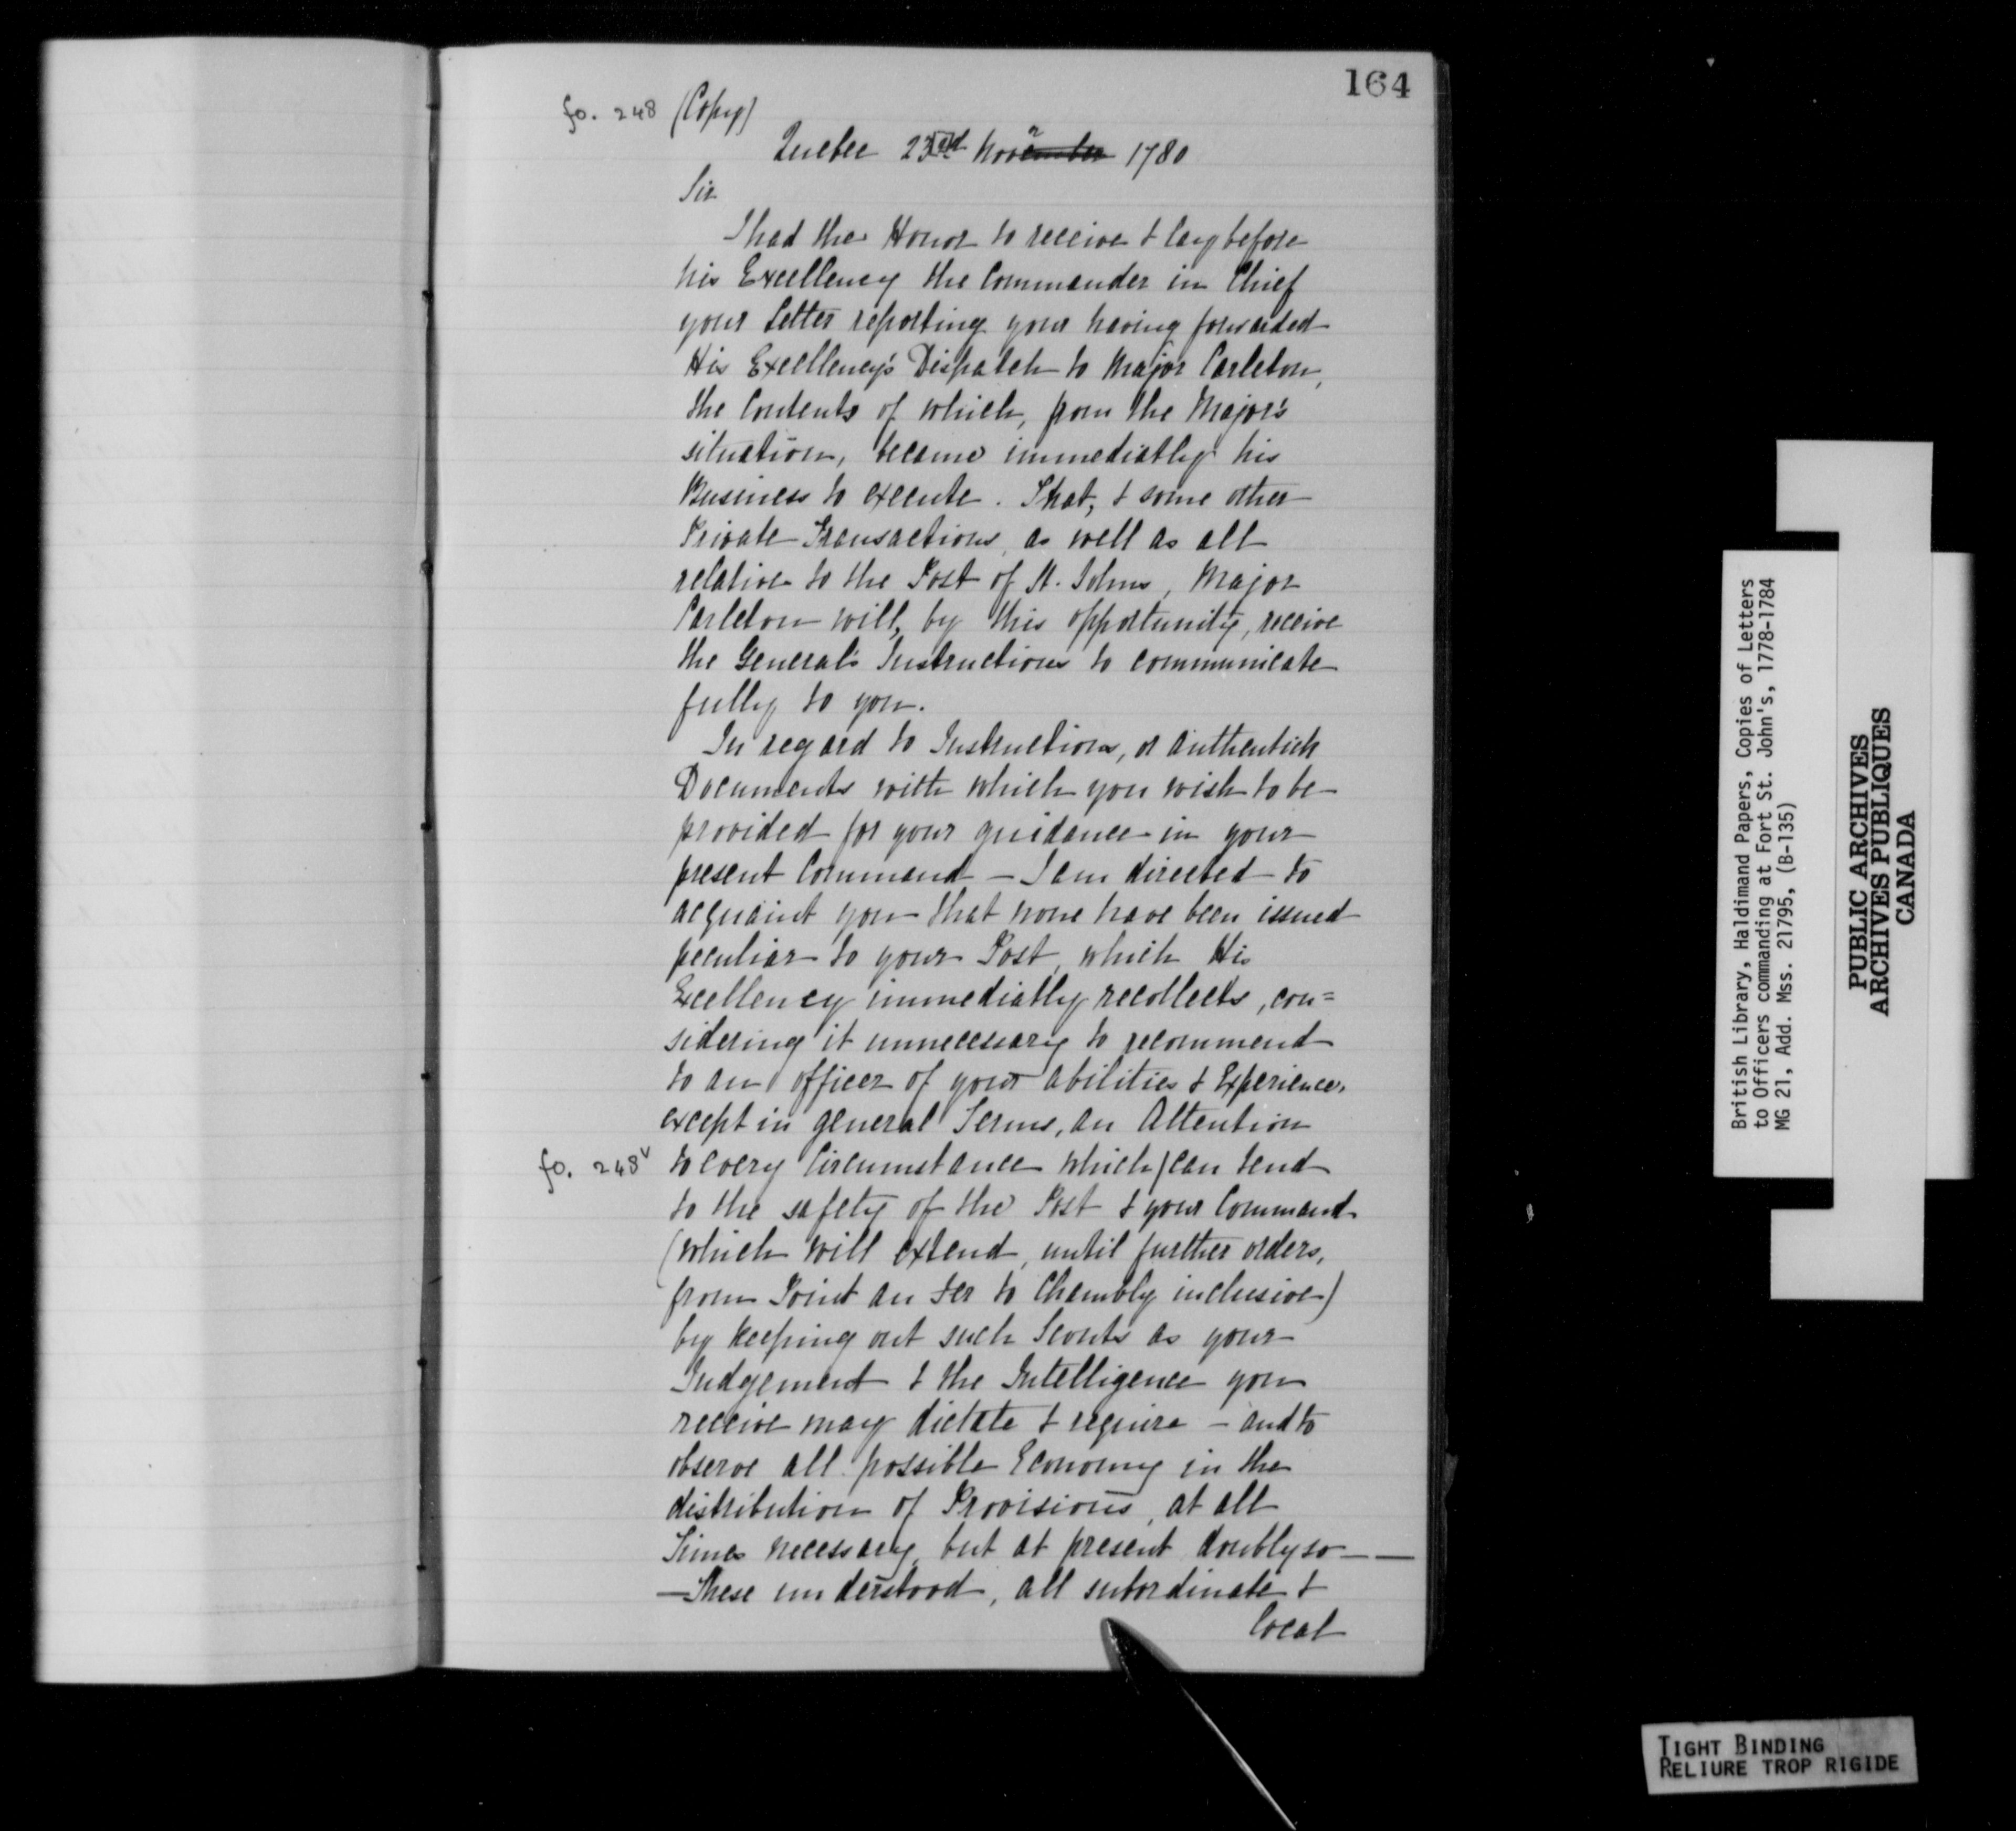 164
fo. 248 (Copy)
Quebec 23rd Novr 1780
Sir
I had the Honor to receive & lay before
his Excellency the Commander in Chief
your Letter reporting your having forwarded
His Excellency's Dispatch to Major Carleton,
the Contents of which, from the Major's
situation, became immediatly his
Business to execute. That, & some other
Private Transactions, as well as all
relative to the Post of St. Johns, Major
Carleton will, by this opportunity, receive
the General's Instructions to communicate
fully to you.
In regard to Instructions, or authentick
Documents with which you wish to be
provided for your guidance in your
present Command - I am directed to
acquaint you that none have been issued
peculiar to your Post, which His
Excellency immediatly recollects, con=
sidering it unnecessary to recommend
to an officer of your abilities & Experience,
except in general Terms, an Attention
fo. 248v to every Circumstance which/can tend
to the safety of the Post & your Command
(which will extend, until further orders,
from Point au fer to Chambly inclusive)
by keeping out such Scouts as your
Judgement & the Intelligence you
receive may dictate & require - and to
observe all possible Economy in the
distribution of Provisions, at all
Times necessary, but at present doubly so — —
— These understood, all subordinate &
local
British Library, Haldimand Papers, Copies of Letters
to Officers commanding at Fort St. John's, 1778-1784
MG 21, Add. Mss. 21795, (B-135)
PUBLIC ARCHIVES
ARCHIVES PUBLIQUES
CANADA
TIGHT BINDING
RELIURE TROP RIGIDE